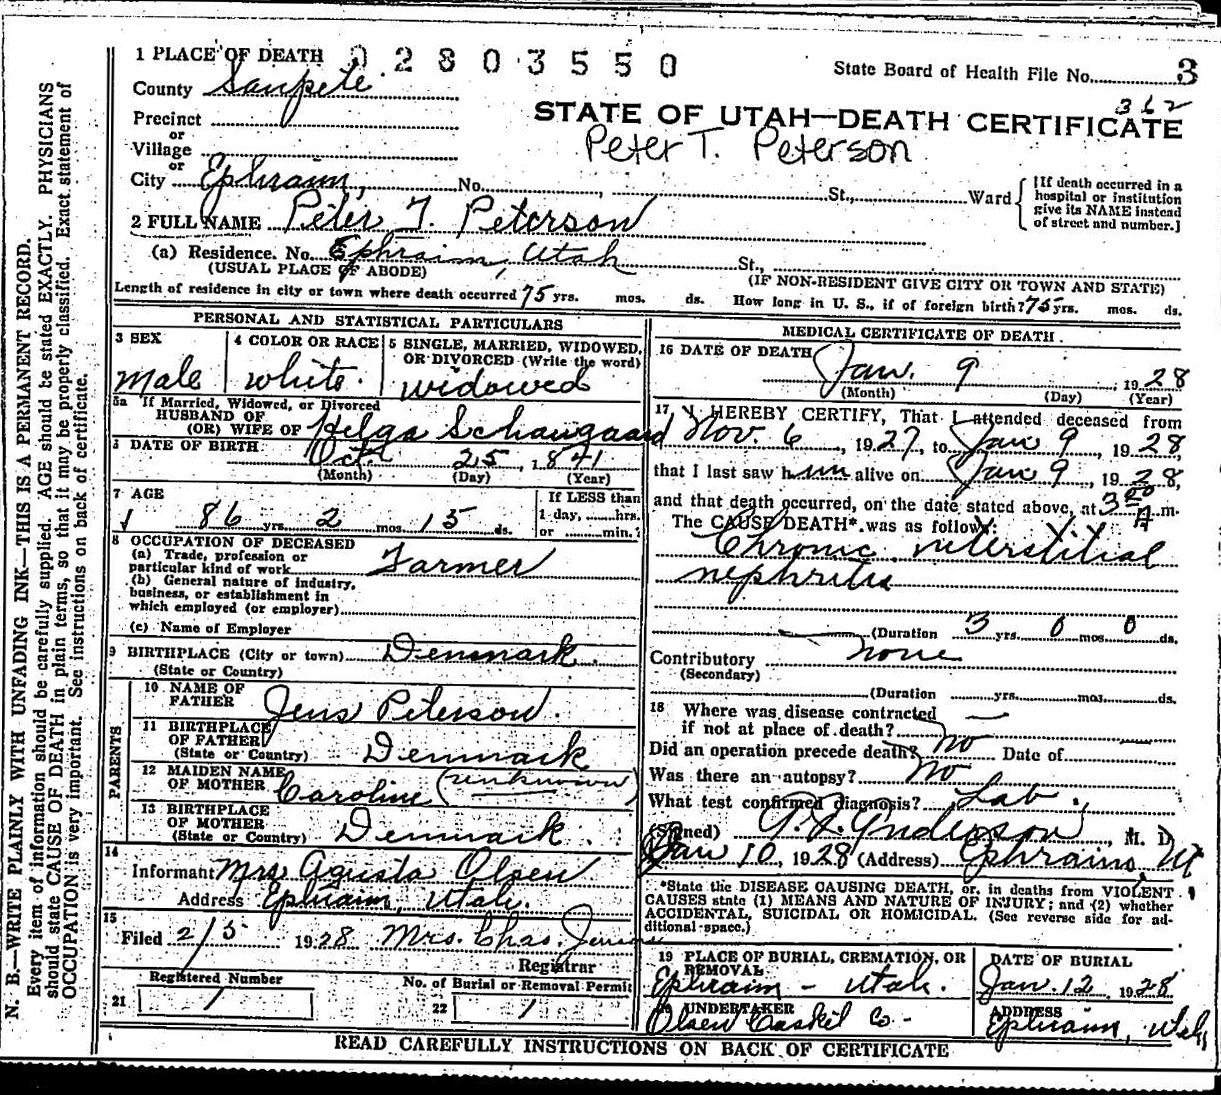 1 PLACE OF DEATH 02803550
State Board of Health File No. 3
County Sanpete
362
STATE OF UTAH—DEATH CERTIFICATE
Precinct
or
Peter T. Peterson
Village
or
City Ephraim, No. , St., Ward
{If death occurred in a hospital or institution give its NAME instead of street and number.}
2 FULL NAME Peter T. Peterson
(a) Residence. No. Ephraim, Utah St.,
(USUAL PLACE OF ABODE) (IF NON-RESIDENT GIVE CITY OR TOWN AND STATE)
Length of residence in city or town where death occurred 75 yrs. mos. ds. How long in U. S., if of foreign birth? 75 yrs. mos. ds.
PERSONAL AND STATISTICAL PARTICULARS
3 SEX
Male
4 COLOR OR RACE
white.
5 SINGLE, MARRIED, WIDOWED,
OR DIVORCED (Write the word)
widowed
5a If Married, Widowed, or Divorced
HUSBAND OF
(OR) WIFE OF Helga Schaugaard
6 DATE OF BIRTH Oct. 25, 1841
(Month) (Day) (Year)
7 AGE
86 yrs. 2 mos. 15 ds.
If LESS than
1 day, hrs.
or min.?
8 OCCUPATION OF DECEASED
(a) Trade, profession or
particular kind of work Farmer
(b) General nature of industry,
business, or establishment in
which employed (or employer)
(c) Name of Employer
9 BIRTHPLACE (City or town) Denmark.
(State or Country)
PARENTS
10 NAME OF
FATHER Jens Peterson.
11 BIRTHPLACE
OF FATHER
(State or Country) Denmark
12 MAIDEN NAME
OF MOTHER Caroline (unknown)
13 BIRTHPLACE
OF MOTHER
(State or Country) Denmark.
14
Informant Mrs Agusta Olsen
Address Ephraim, Utah.
15
Filed 2/3 1928 Mrs. Chas. Jensen
Registrar
Registered Number
21 1
No. of Burial or Removal Permit
22 1
MEDICAL CERTIFICATE OF DEATH
16 DATE OF DEATH Jan. 9, 1928
(Month) (Day) (Year)
17 I HEREBY CERTIFY, That I attended deceased from
Nov. 6, 1927, to Jan 9, 1928,
that I last saw him alive on Jan 9, 1928,
and that death occurred, on the date stated above, at 3 00 A m.
The CAUSE DEATH* was as follows:
Chronic interstitial
nephritis
(Duration 3 yrs. 0 mos. 0 ds.
Contributory none
(Secondary)
(Duration yrs. mos. ds.
18 Where was disease contracted
if not at place of death? —
Did an operation precede death? no Date of —
Was there an autopsy? No
What test confirmed diagnosis? Lab.
(Signed) Anderson, M. D.
Jan 10, 1928 (Address) Ephraim, Ut
*State the DISEASE CAUSING DEATH, or, in deaths from VIOLENT
CAUSES state (1) MEANS AND NATURE OF INJURY; and (2) whether
ACCIDENTAL, SUICIDAL OR HOMICIDAL. (See reverse side for ad-
ditional space.)
19 PLACE OF BURIAL, CREMATION, OR
REMOVAL
Ephraim - Utah.
DATE OF BURIAL
Jan. 12, 1928
20 UNDERTAKER
Olsen Casket Co.
ADDRESS
Ephraim, Utah
READ CAREFULLY INSTRUCTIONS ON BACK OF CERTIFICATE
N. B.—WRITE PLAINLY WITH UNFADING INK—THIS IS A PERMANENT RECORD.
Every item of information should be carefully supplied. AGE should be stated EXACTLY. PHYSICIANS
should state CAUSE OF DEATH in plain terms, so that it may be properly classified. Exact statement of
OCCUPATION is very important. See instructions on back of certificate.